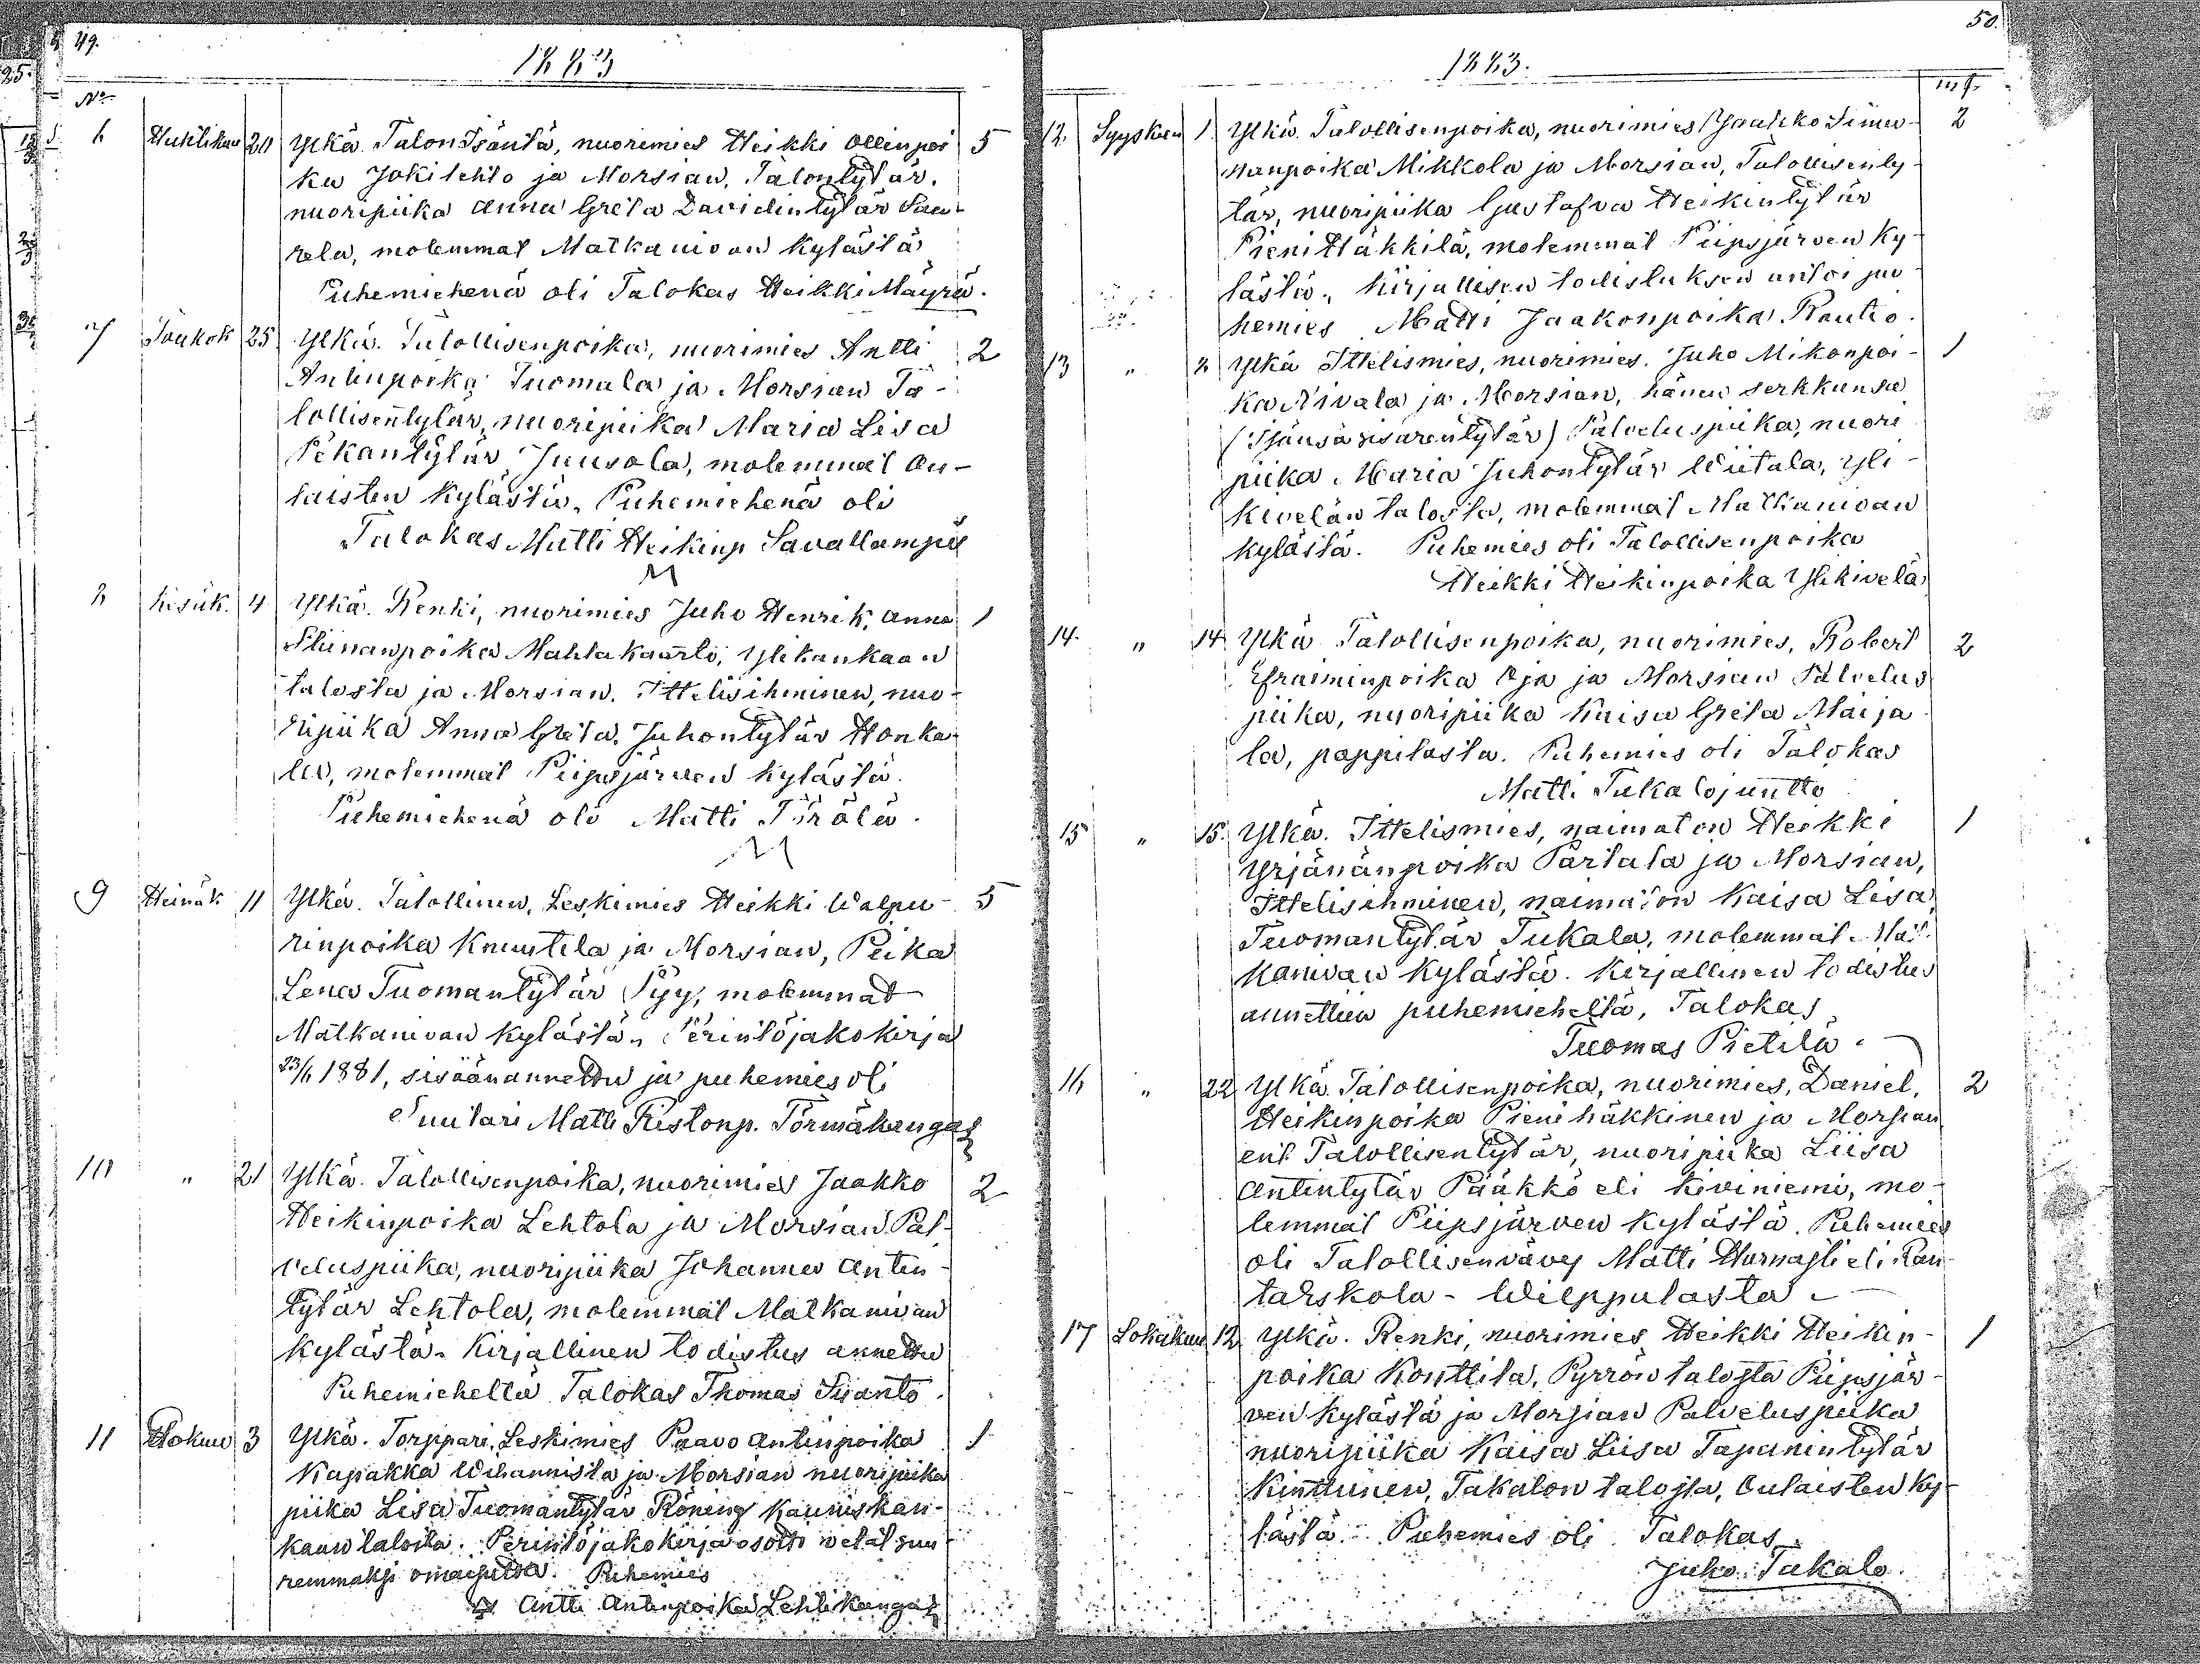 49.
1883
No
6 Huhtikuu 20 Ylkä. Talon Isäntä, nuorimies Heikki Ollinpoi 5
ka Jokilehto ja Morsian, Talontytär,
nuoripiika Anna Greta Davidintytär Saa-
rela, molemmat Matkanivan kylästä
Puhemiehenä oli Talokas Heikki Mäyrä.
7 Toukok 25 Ylkä. Talollisenpoika, nuorimies Antti 2
Antinpoika Tuomala ja Morsian Ta-
lollisentytär, nuoripiika Maria Lisa
Pekantytär Juusola, molemmat Ou-
laisten kylästä. Puhemiehenä oli
Talokas Matti Heikinp Savallampi
8 Kesäk. 4 Ylkä. Renki, nuorimies Juho Henrik, Anna 1
Stiinanpoika Mahlakaarto, Ylikankaan
talosta ja Morsian. Ittelisihminen, nuo-
ripiika Anna Greta, Juhontytär Honka-
la, molemmat Piipsjärven kylästä.
Puhemiehenä oli Matti Törölä.
9 Heinäk 11 Ylkä. Talollinen, Leskimies Heikki Walpu- 5
rinpoika Knuutila ja Morsian, Piika
Lena Tuomantytär Pyy, molemmat
Matkanivan kylästä. Perintöjakokirja
23/6 1881, sisäänannettu ja puhemies oli
Suutari Matti Ristonp. Törmäkangas
10 " 21 Ylkä. Talollisenpoika, nuorimies Jaakko 2
Heikinpoika Lehtola ja Morsian Pal-
veluspiika, nuoripiika Johanna Antin-
tytär Lehtola, molemmat Matkanivan
kylästä. Kirjallinen todistus annettu
Puhemieheltä Talokas Thomas Suanto.
11 Elokuu 3 Ylkä. Torppari, Leskimies Paavo Antinpoika 1
Kapakka Wihannista ja Morsian nuoripiika
piika Lisa Tuomantytär Röning Kauniskan-
kaan talosta. Perintöjakokirja osotti velat suu-
remmaksi omaisuutta. Puhemies
Antti Antinpoika Lehtikangas
50.
1883.
mf.
12 Syyskuu 1 Ylkä. Talollisenpoika, nuorimies Jaakko Simu- 2
nanpoika Mikkola ja Morsian, Talollisenty-
tär, nuoripiika Gustafva Heikintytär
Pieni Häkkilä, molemmat Piipsjärven ky-
lästä. Kirjallisen todistuksen antoi pu-
hemies Matti Jaakonpoika Rautio.
13 " 8 Ylkä Ittelismies, nuorimies. Juho Mikonpoi- 1
ka Nivala ja Morsian, hänen serkkunsa
(Isänsä sisarentytär) Palveluspiika, nuori
piika Maria Juhontytär Wiitala, Yli-
kivelän talosta, molemmat Matkanivan
kylästä. Puhemies oli Talollisenpoika
Heikki Heikinpoika Ylikivelä
14. " 14 Ylkä Talollisenpoika, nuorimies, Robert 2
Efraiminpoika Oja ja Morsian Palvelus
piika, nuoripiika Kaisa Greta Maija
la, pappilasta. Puhemies oli Talokas
Matti Tukalojuntto
15 " 15. Ylkä. Ittelismies, naimaton Heikki 1
Yrjänänpoika Partala ja Morsian,
Ittelisihminen, naimaton Kaisa Lisa
Tuomantytär Tukala, molemmat Mat
kanivan kylästä. Kirjallinen todistus
annettiin puhemieheltä, Talokas
Tuomas Pietilä.
16 " 22 Ylkä Talollisenpoika, nuorimies, Daniel, 2
Heikinpoika Pienihäkkinen ja Morsian
ent. Talollisentytär, nuoripiika Liisa
Antintytär Pääkkö eli Kiviniemi, mo-
lemmat Piipsjärven kylästä. Puhemies
oli Talollisenvävy Matti Hurnasti eli Ran-
tarskola - Wilppulasta
17 Lokakuu 12 Ylkä. Renki, nuorimies Heikki Heikin- 1
poika Konttila, Pyrrön talosta Piipsjär-
ven kylästä ja Morsian Palveluspiika
nuoripiika Kaisa Liisa Tapanintytär
Kinttunen, Takalon talosta, Oulaisten ky-
lästä. Puhemies oli Talokas
Juho Takalo